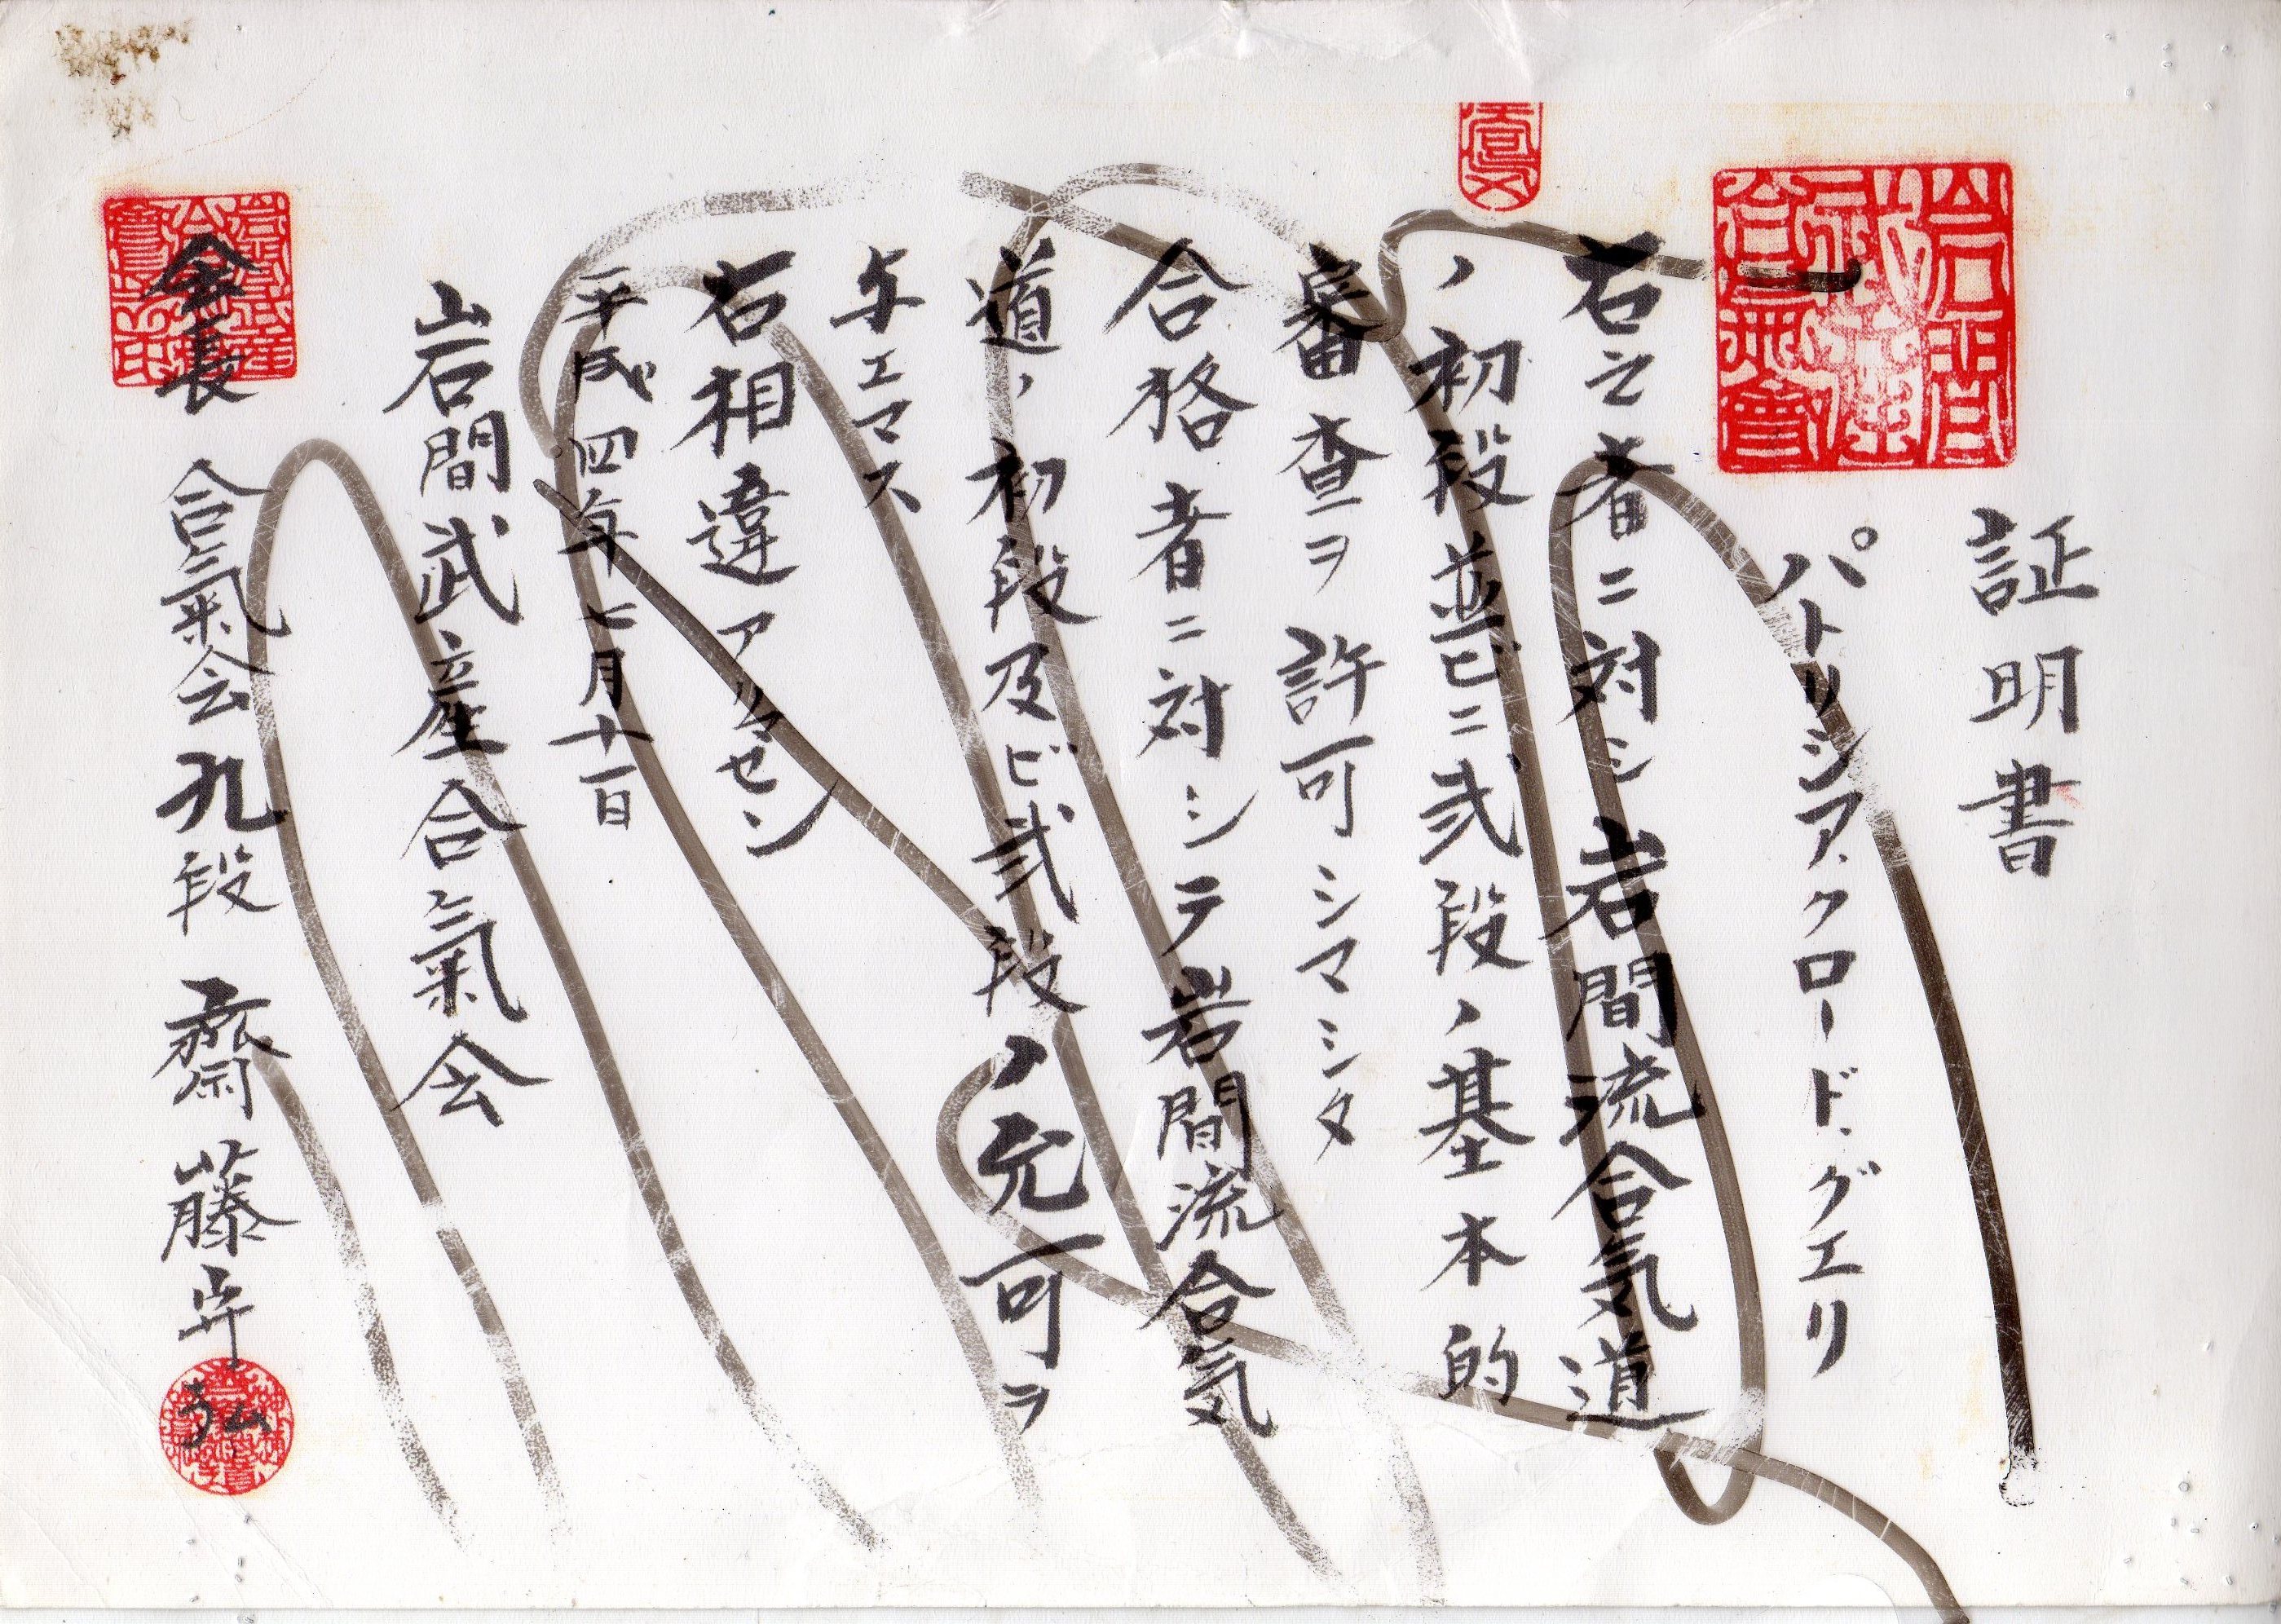 証明書
パトリシア、クロード、グエリ
右之者ニ対シ岩間流合気道
ノ初段並ビニ弐段ノ基本的
審査ヲ許可シマシタ
合格者ニ対シテ岩間流合気
道ノ初段及ビ弐段ノ允可ヲ
与エマス
右相違アリマセン
平成四年七月十一日
岩間武産合氣会
会長 合氣会九段 齋藤守弘